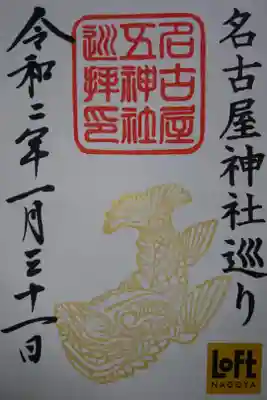 名古屋神社巡り
名古屋
五神社
巡拝印
令和二年一月三十一日
LOFT
NAGOYA